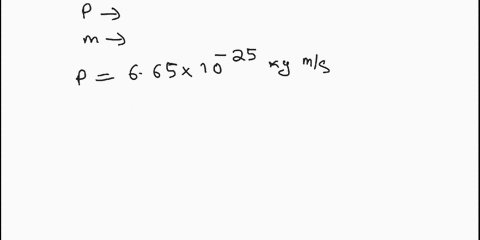 P →
m →
P = 6.65 × 10⁻²⁵ kg m/s